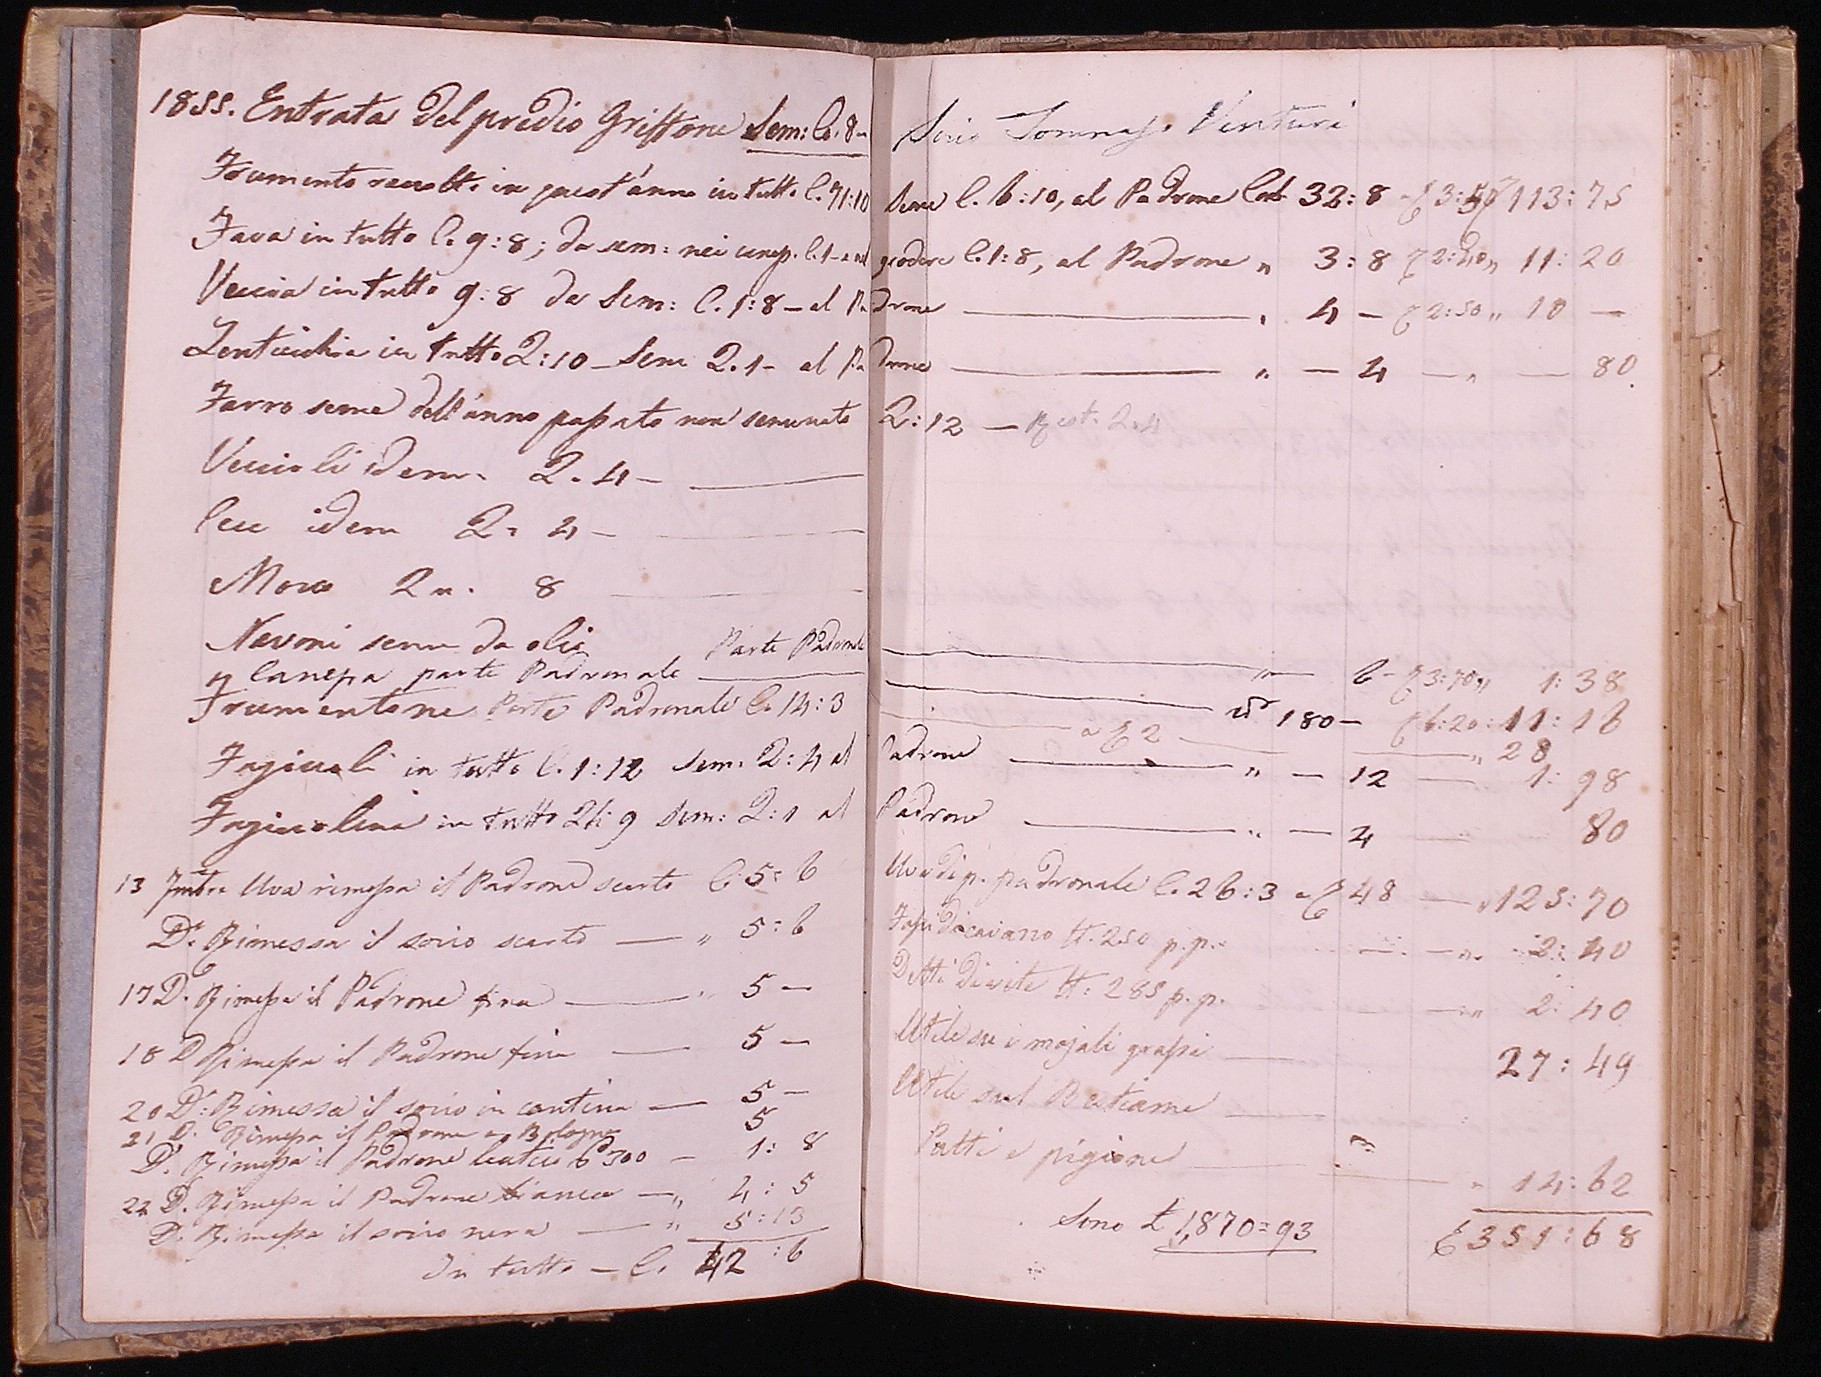 1855. Entrata del predio Griffone Sem: C. 8 -
Frumento raccolto in quest'anno in tutto C. 71:10
Fava in tutto C. 9:8; da sem: nei camp. C. 1 - e al
Veccia in tutto 9:8 da Sem: C. 1:8 - al Pa
Lenticchia in tutto 2:10 - Sem 2.1 - al Pa
Farro seme dell'anno passato non seminato
Veccioli idem. 2.4 -
Cece idem 2: 4 -
Moco 2 „. 8
Navoni seme da olio Parte Padronale
Canepa parte Padronale
Frumentone Parte Padronale C. 14:3
Fagiuoli in tutto C. 1:12 sem. 2:4 al
Fagiuolina in tutto 2: 9 Sem: 2:1 al
13 Uva rimessa il Padrone scarto C. 5: 6
D. Rimessa il socio scarto — „ 5: 6
17 D. Rimessa il Padrone fina — 5 -
18 D Rimessa il Padrone fina — 5 -
20 D: Rimessa il socio in cantina — 5 -
21 D. Rimessa il Padrone a Bologna 5
D. Rimessa il Padrone 300 - 1: 8
22 D. Rimessa il Padrone bianca — „ 4: 5
D. Rimessa il socio nera — „ 5:13
In tutto — C. 42 :6
Socio Tommaso Venturi
Seme C. 6:10, al Padrone Corb. 32: 8 £ 113: 75
godere C. 1:8, al Padrone „ 3: 8 £ 2:40 „ 11: 20
drone „ 4 - £ 2:50 „ 10 —
drone „ — 4 — „ — 80
2:12 — Rest. 2.4
„ — 6 - £ 3:70 „ 1: 38
180 - £ 6:20: 11: 16
a £ 2 — „ 28
Padrone „ — 12 — 1: 98
Padrone „ — 4 — 80
Uva di p. padronale C. 26:3 a £ 48 — „ 125: 70
250 p. p. — „ 2: 40
Detti di vite 285 p. p. — „ 2: 40
Utile su i majali grassi — 27: 49
Utile sul Bestiame
Patti e pigione — „ 14: 62
Sono £ 1,870=93 £ 351: 68